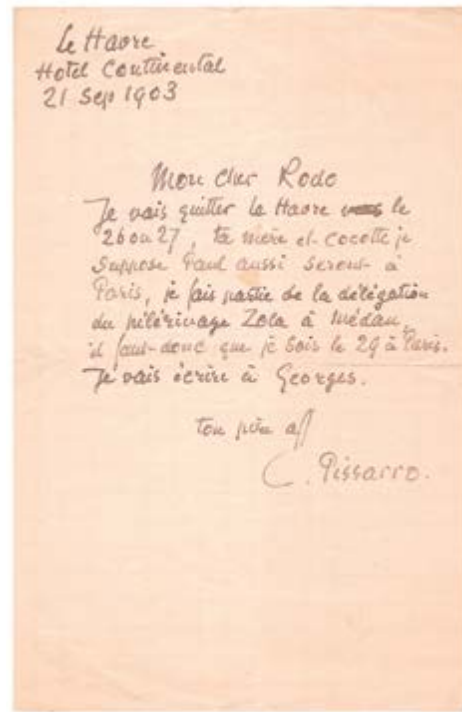 Le Havre
Hotel Continental
21 Sep 1903
Mon cher Rodo
Je vais quitter le Havre le
26 ou 27, ta mère et cocotte je
suppose Paul aussi seront à
Paris, je fais partie de la délégation
du pélérinage Zola à Médan,
il faut donc que je sois le 29 à Paris.
Je vais écrire à Georges.
ton père aff
C. Pissarro.